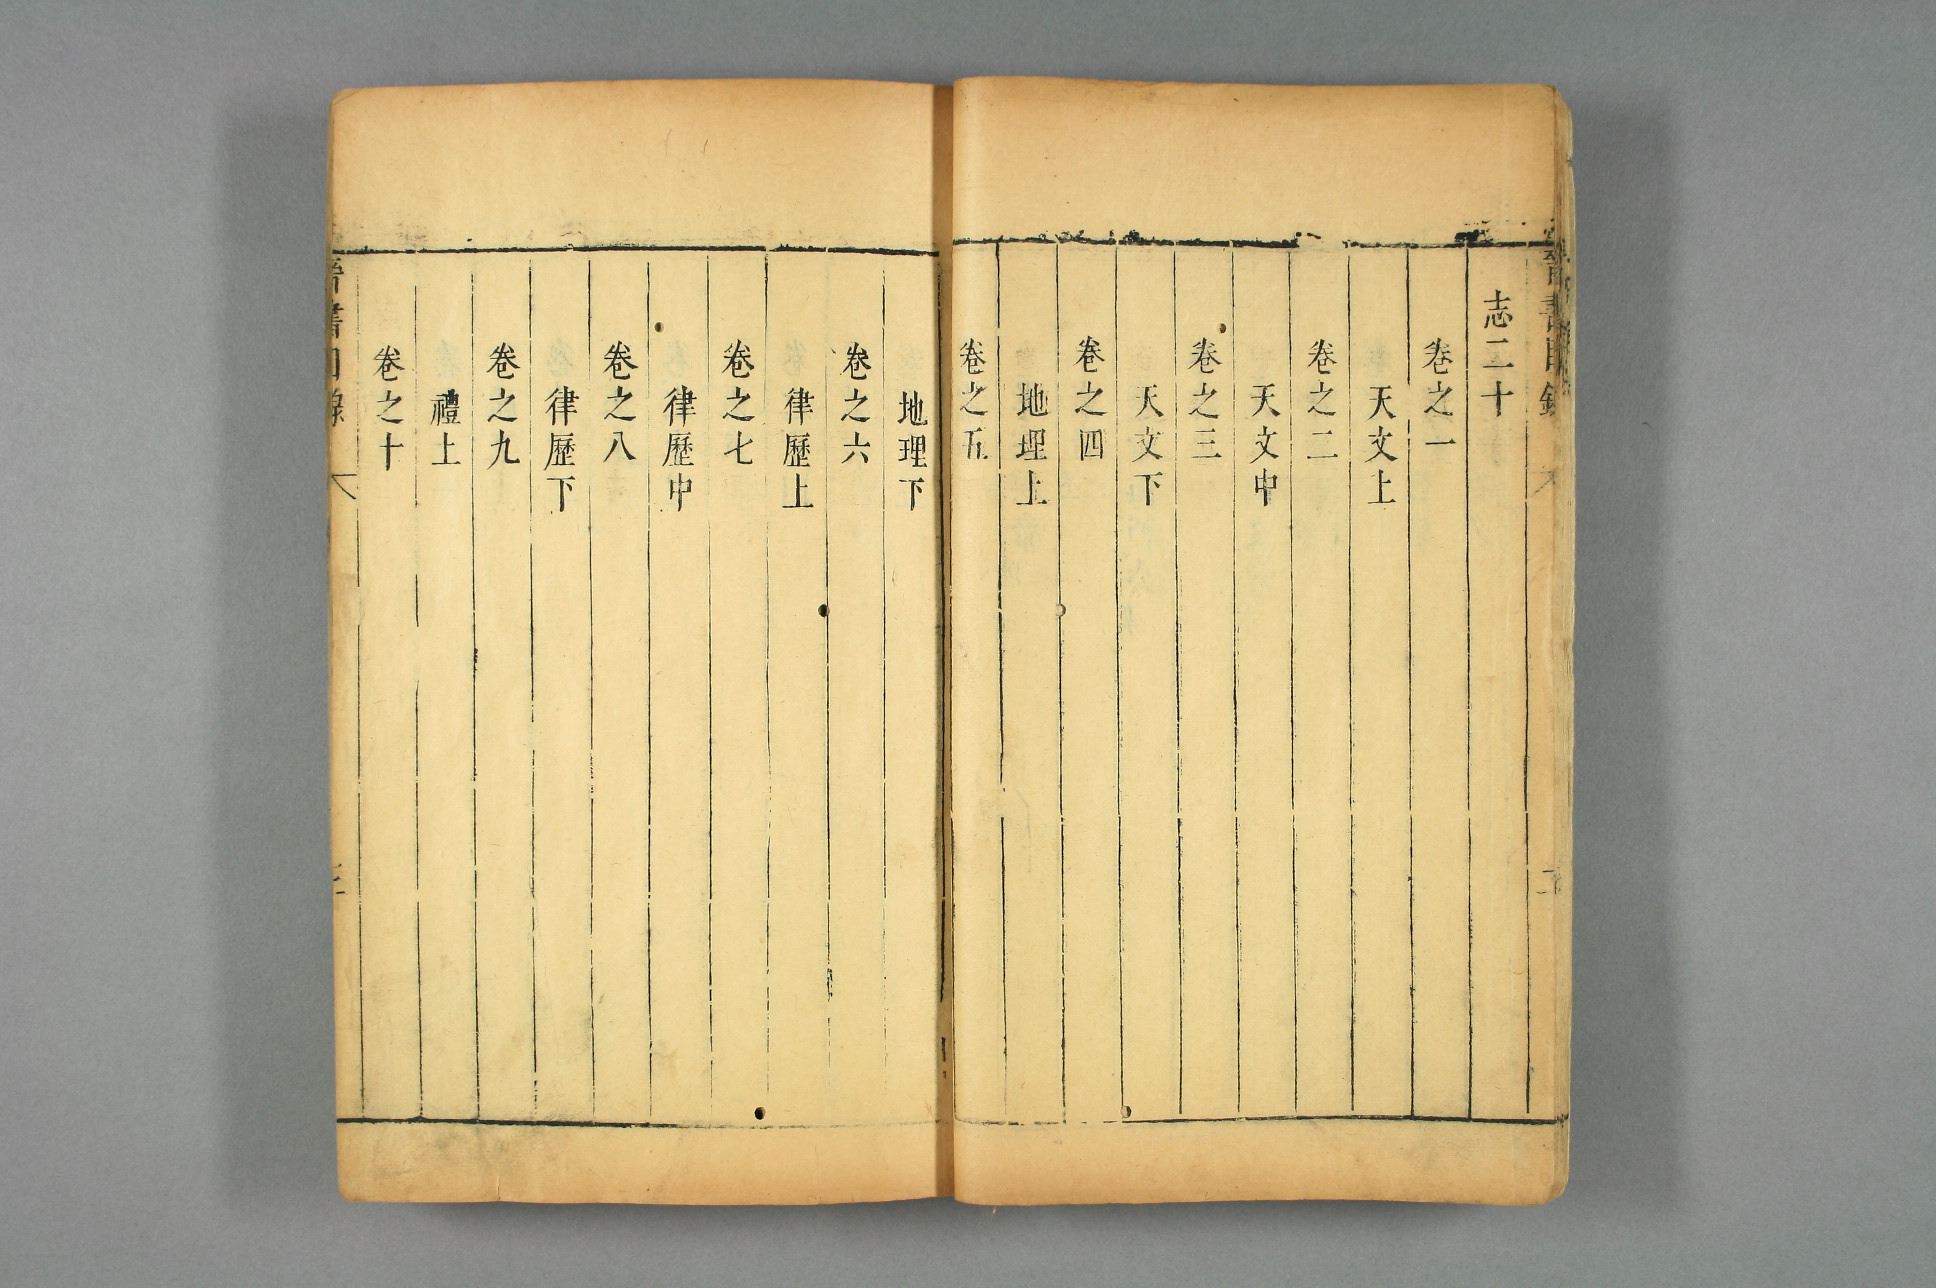 晉書目錄
二
志二十
卷之一
天文上
卷之二
天文中
卷之三
天文下
卷之四
地理上
卷之五
地理下
卷之六
律歷上
卷之七
律歷中
卷之八
律歷下
卷之九
禮上
卷之十
晉書目錄